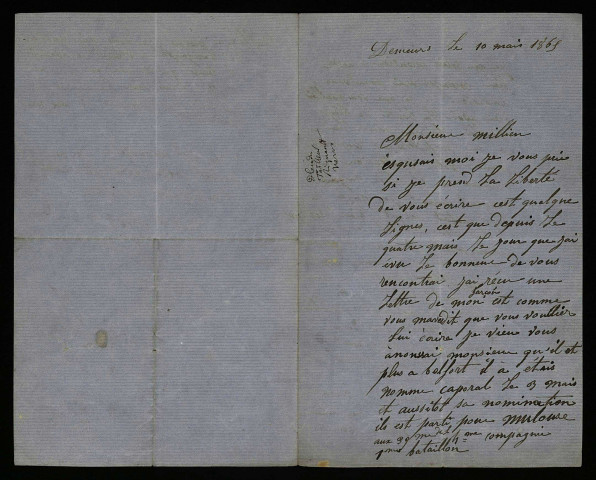 Demeurs le 10 mais 1865
Monsieur Millien
esqusais moi je vous prie
si je prend la liberté
de vous écrire cest quelque
lignes, cest que depuis le
quatre mais le jour que jai
evu le bonneur de vous
rencontrai jai récu une
lettre de mon garçon est comme
vous mavedit que vous voullier
lui écrire je vien vous
anonssai monsieur qu'il est
plus a belfort il a étais
nomme caporal le 3 mais
et aussitot sa nomination
ils est parti pour mulouse
aux 99 me de l 4 me compagnie
1 me bataillon